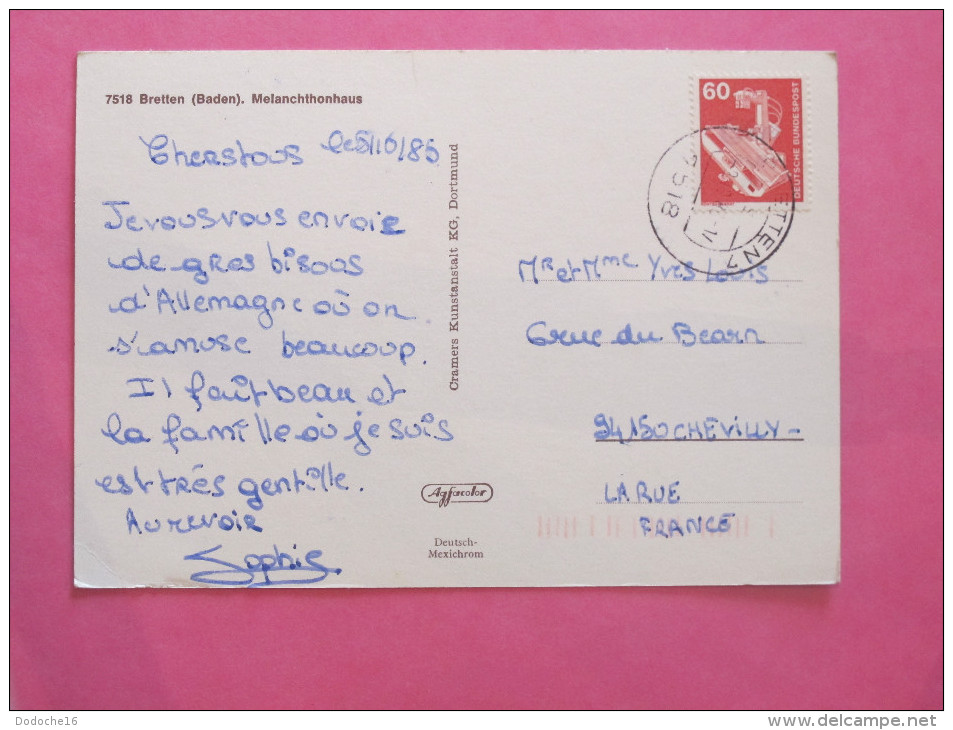 7518 Bretten (Baden). Melanchthonhaus
Cherstous le 5/10/85
Je vous vous envoie
de gros bisous
d'Allemagne où on
s'amuse beaucoup.
Il fait beau et
la famille où je suis
est très gentille.
Aurevoir
Sophie.
Cramers Kunstanstalt KG, Dortmund
Agfacolor
Deutsch-
Mexichrom
60
DEUTSCHE BUNDESPOST
7518
BRETTEN 2
Mr et Mme Yves Louis
6 rue du Bearn
94150 CHEVILLY-
LA RUE
FRANCE
Dodoche16
www.delcampe.net